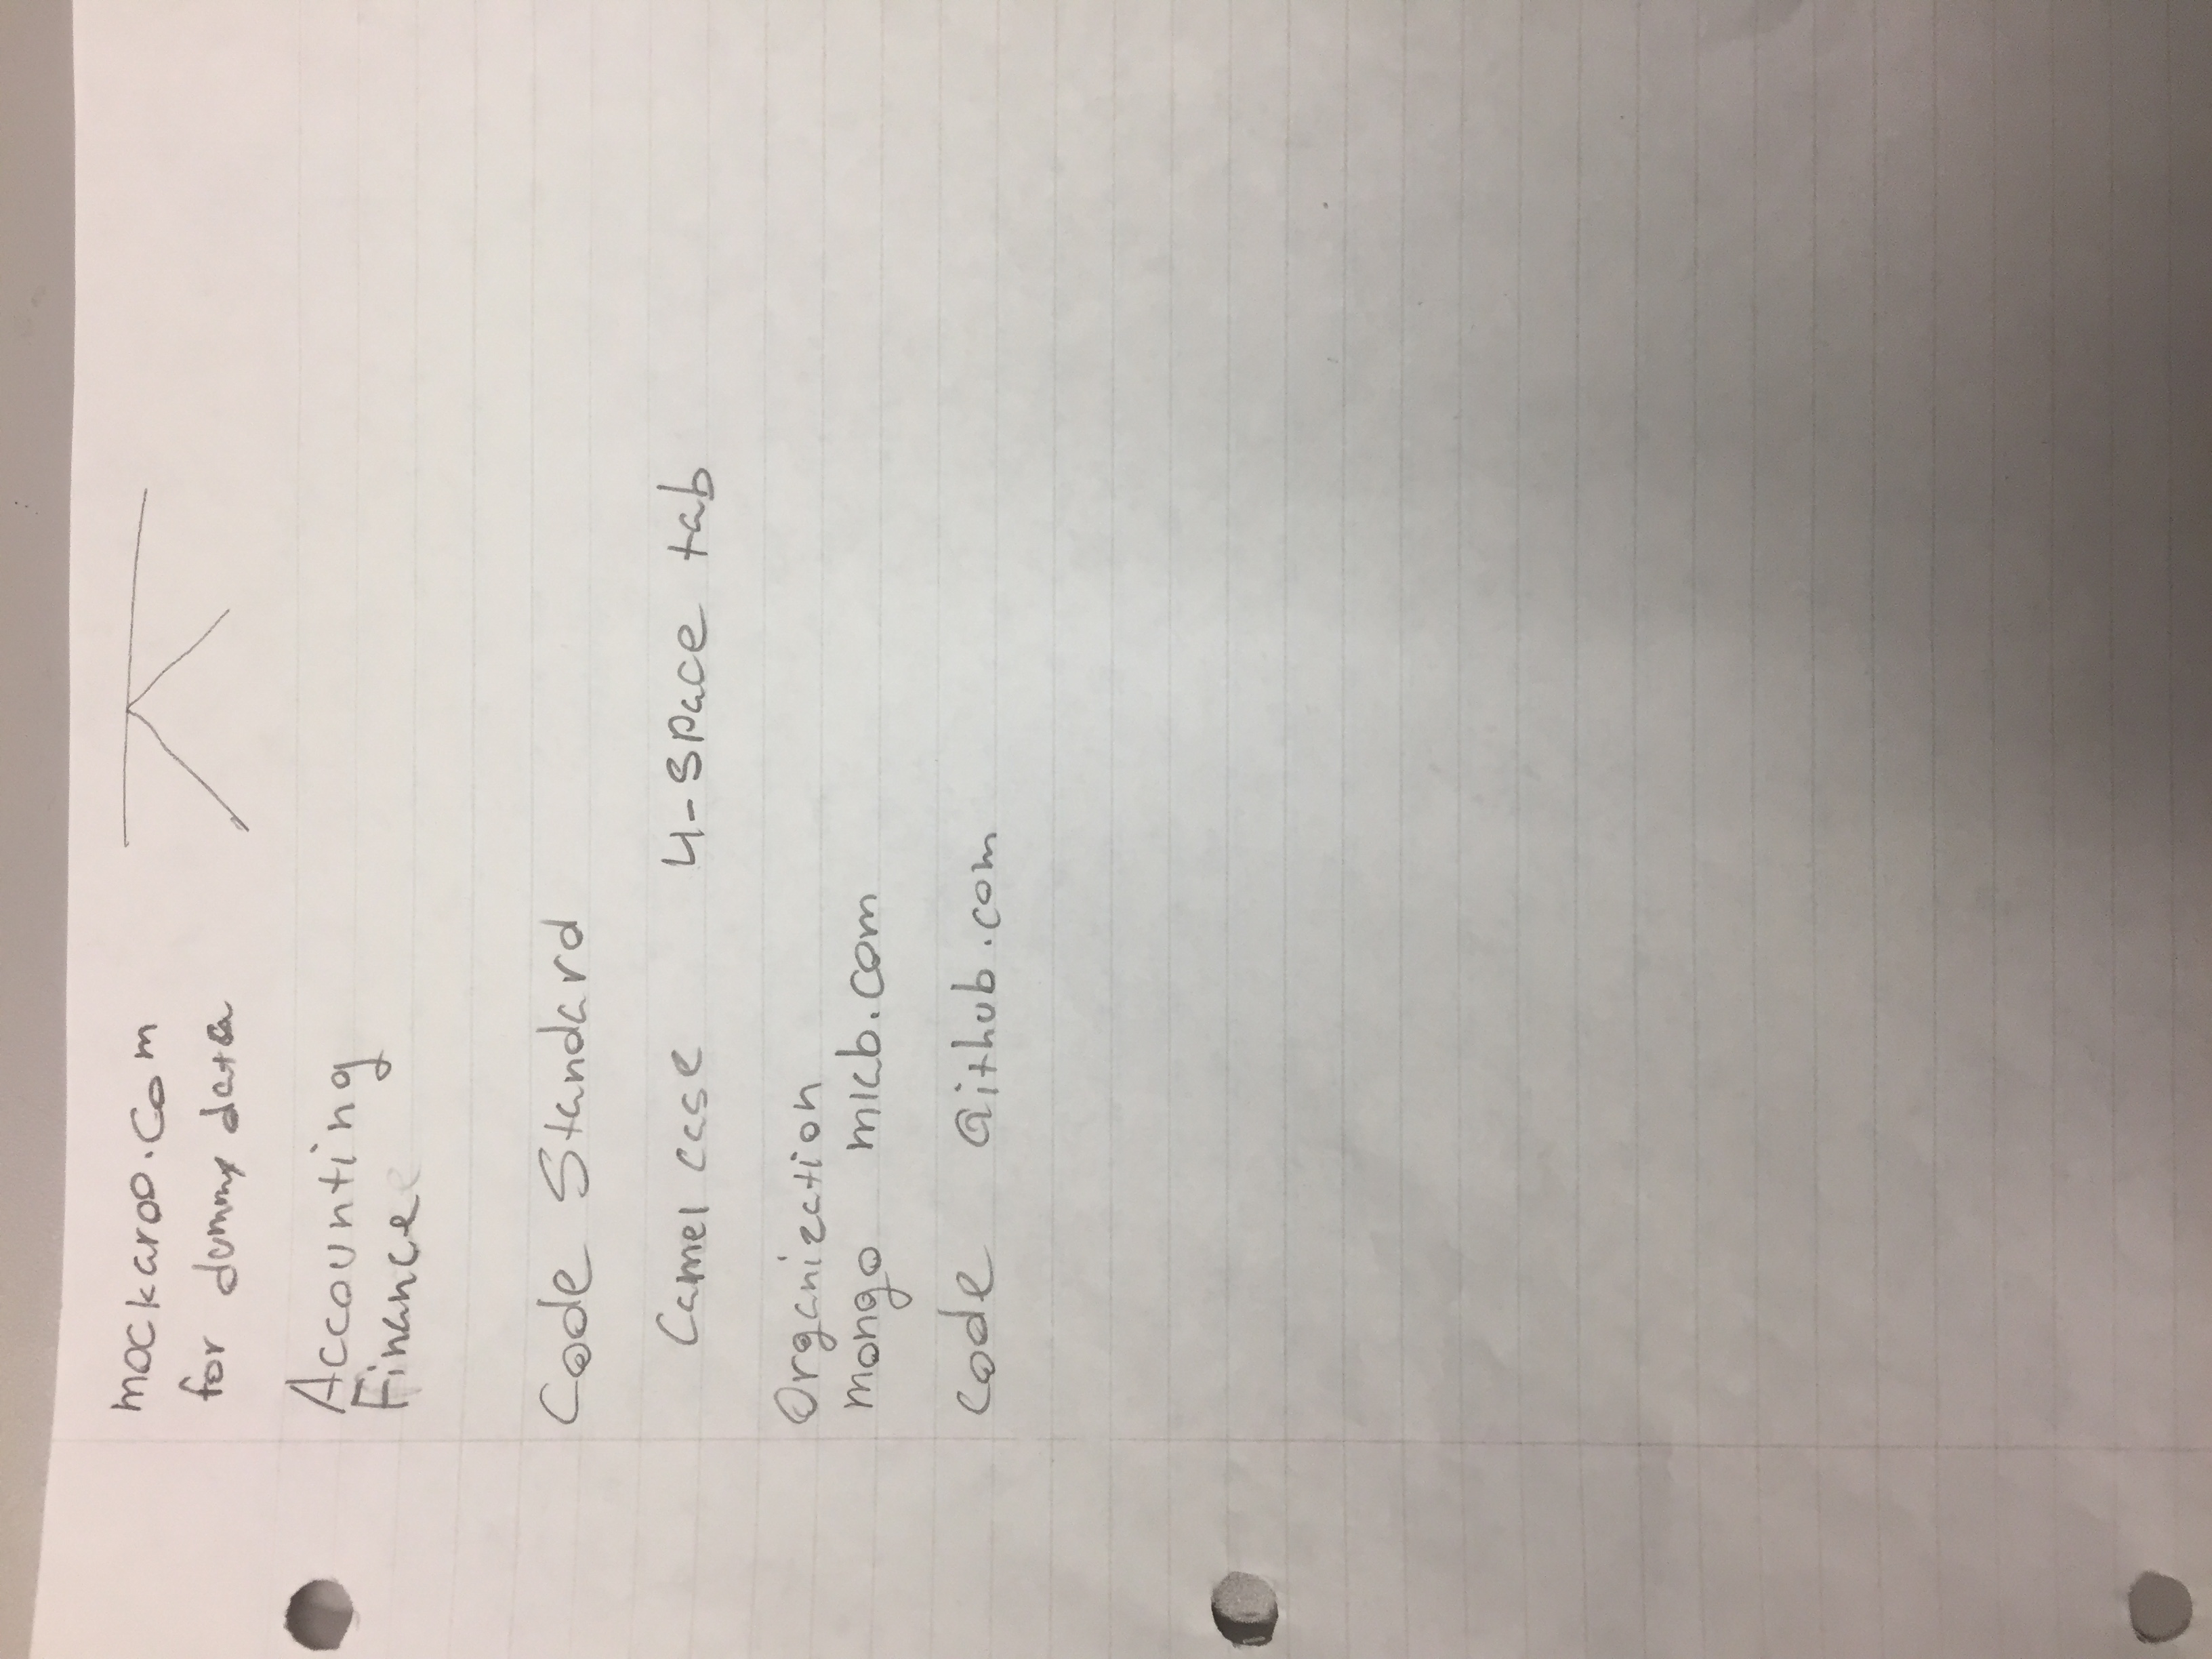 mockaroo.com
for dummy data
Accounting
Finance
Code Standard
Camel case 4-space tab
Organization
mongo mlab.com
code Github.com